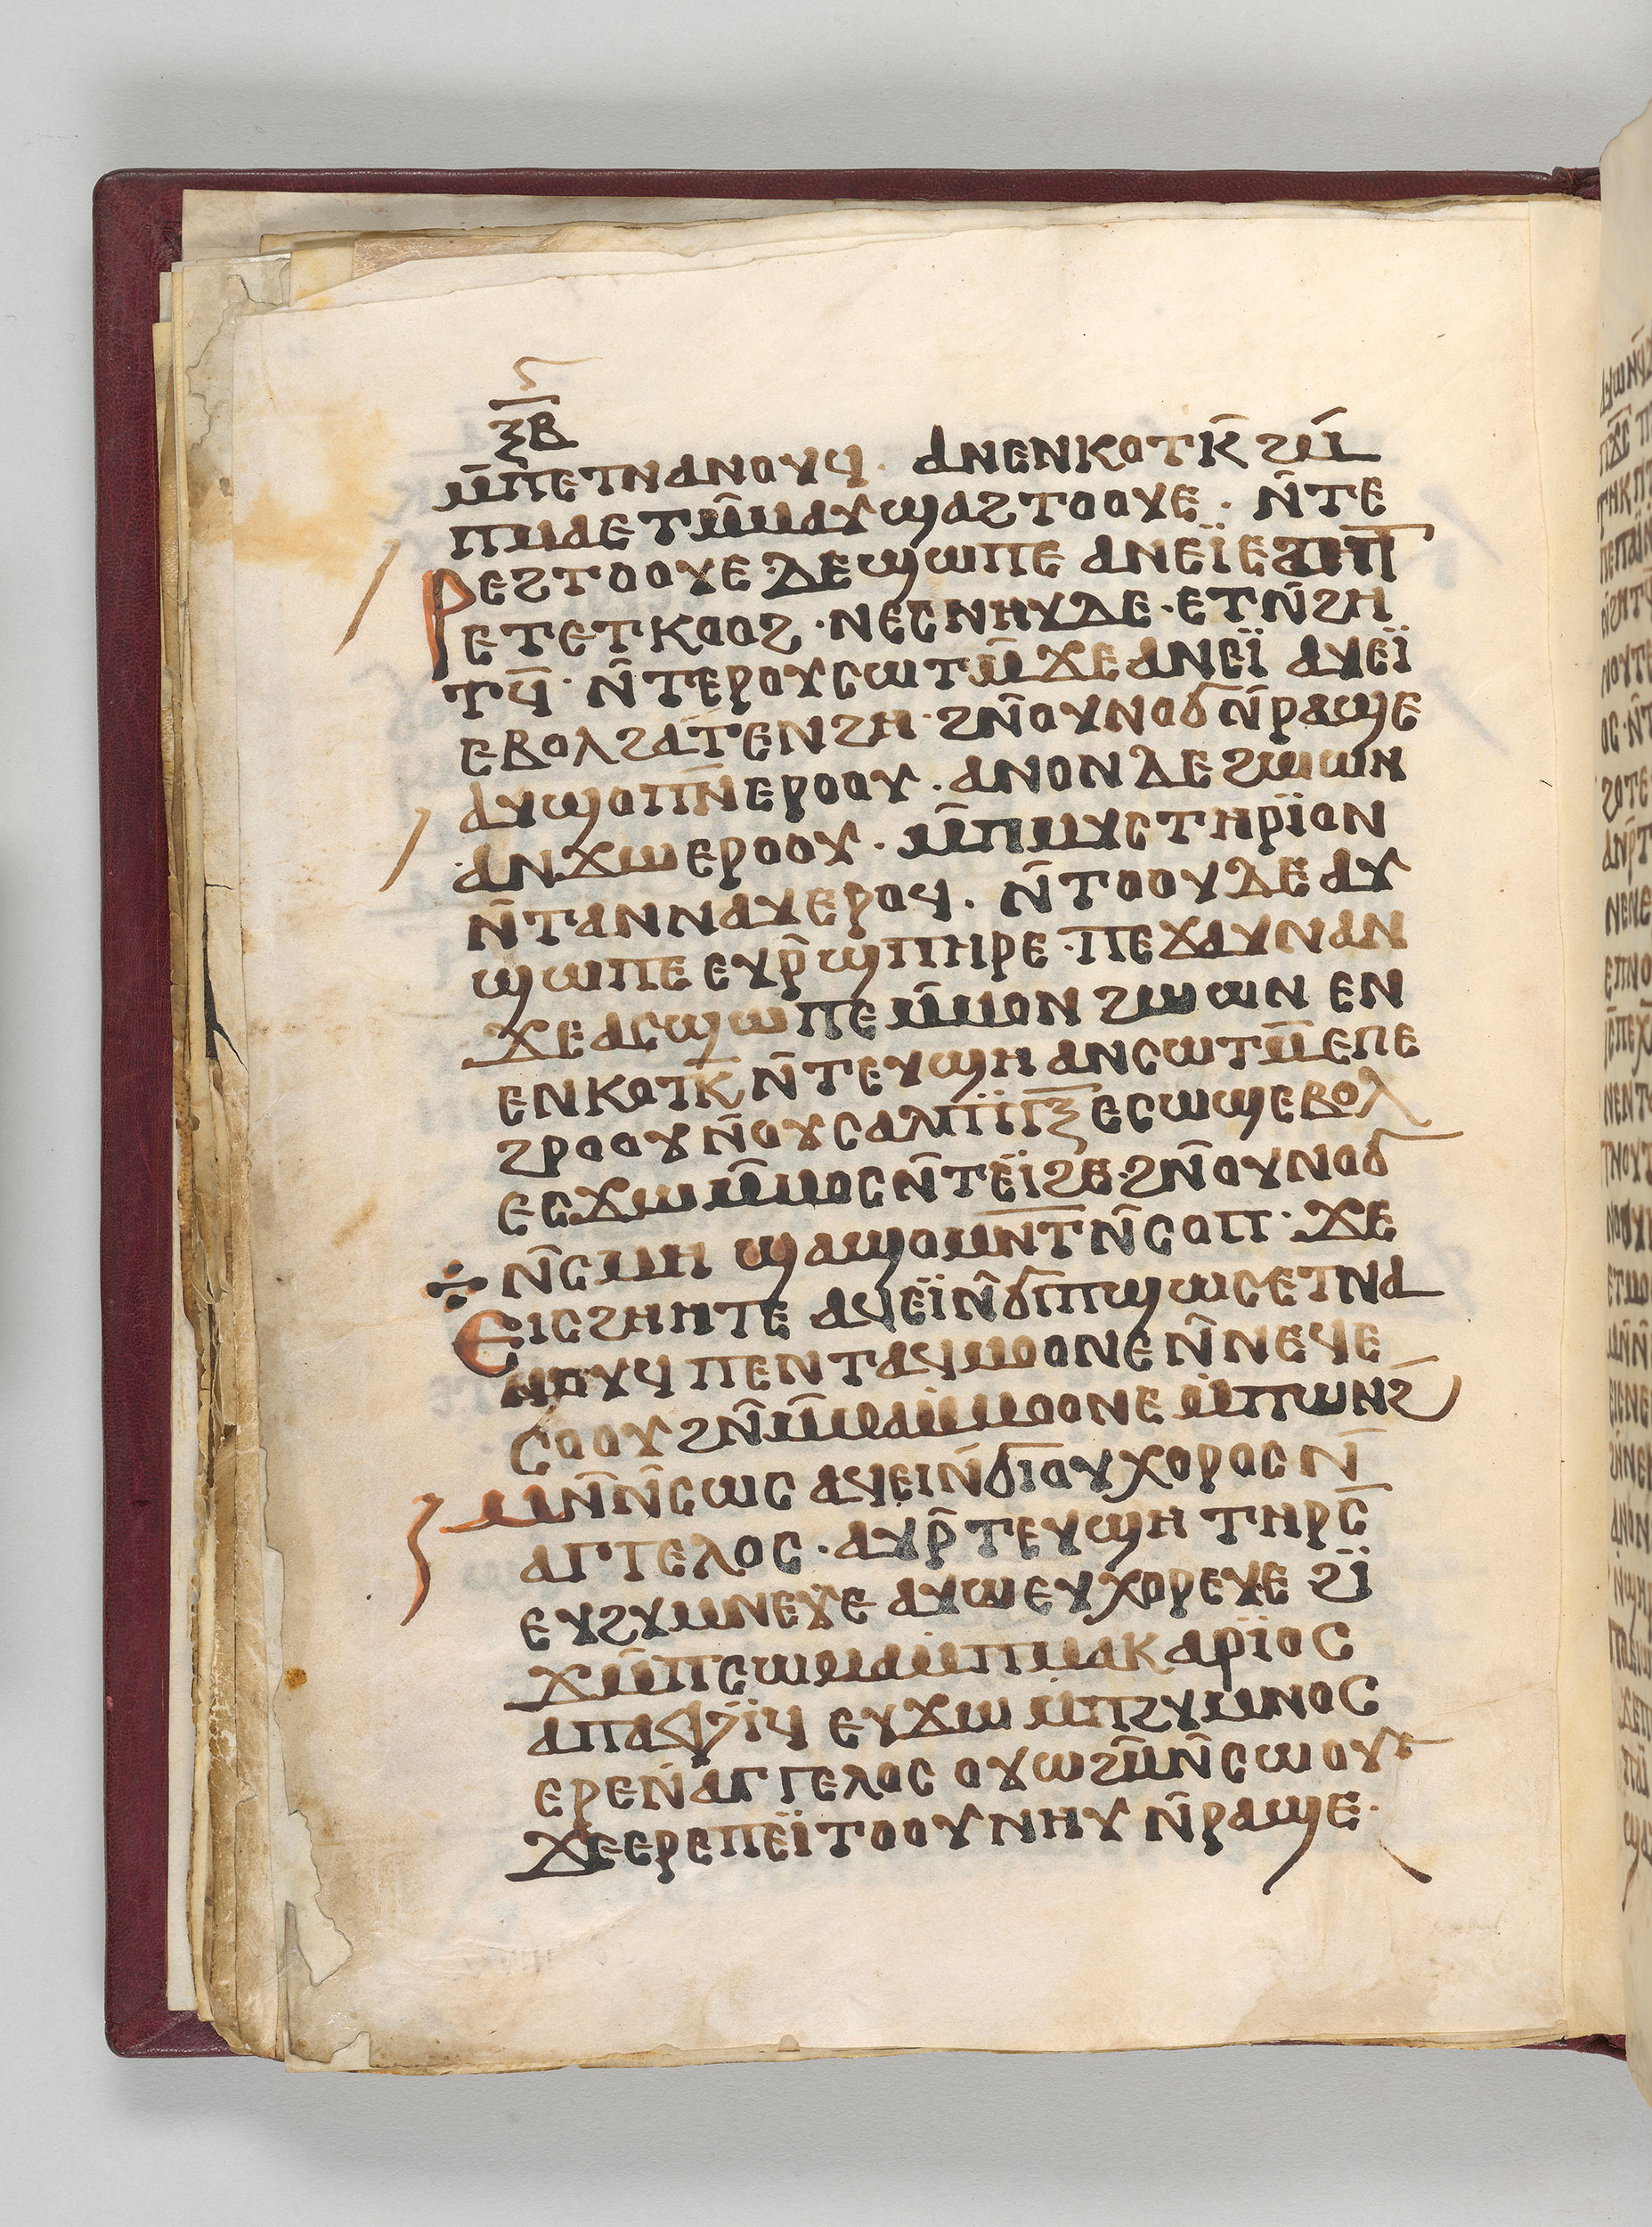 ⲝⲃ
ⲙ̄ⲡⲉⲧⲛⲁⲛⲟⲩϥ· ⲁⲛⲉⲛⲕⲟⲧⲕ̄ ϩⲙ̄
ⲡⲙⲁⲉⲧⲙ̄ⲙⲁⲩϣⲁϩⲧⲟⲟⲩⲉ· ⲛ̄ⲧⲉ
ⲣⲉϩⲧⲟⲟⲩⲉ ⲇⲉϣⲱⲡⲉ ⲁⲛⲉⲓ̈ⲉ
ⲉⲧⲉⲧⲕⲟⲟϩ· ⲛⲉⲥⲛⲏⲩⲇⲉ· ⲉⲧⲛ̄ϩⲏ
ⲧϥ̄· ⲛ̄ⲧⲉⲣⲟⲩⲥⲱⲧⲙ̄ϫⲉⲁⲛⲉⲓ̈ ⲁⲩⲉⲓ̈
ⲉⲃⲟⲗϩⲁⲧⲉⲛϩⲏ· ϩⲛ̄ⲟⲩⲛⲟϭⲛ̄ⲣⲁϣⲉ
ⲁⲩϣⲟⲡⲛ̄ⲉⲣⲟⲟⲩ· ⲁⲛⲟⲛ ⲇⲉ ϩⲱⲱⲛ
ⲁⲛϫⲱⲉⲣⲟⲟⲩ· ⲙ̄ⲡⲙⲩⲥⲧⲏⲣⲓ̈ⲟⲛ
ⲛ̄ⲧⲁⲛⲛⲁⲩⲉⲣⲟϥ· ⲛ̄ⲧⲟⲟⲩⲇⲉ ⲁⲩ
ϣⲱⲡⲉ ⲉⲩⲣ̄ϣⲡⲏⲣⲉ· ⲡⲉϫⲁⲩⲛⲁⲛ
ϫⲉⲁⲥϣⲱⲡⲉ ⲙ̄ⲙⲟⲛ ϩⲱⲱⲛ ⲉⲛ
ⲉⲛⲕⲟⲧⲕ̄ ⲛ̄ⲧⲉⲩϣⲏ ⲁⲛⲥⲱⲧⲙ̄ⲉⲡⲉ
ϩⲣⲟⲟⲩ ⲛ̄ⲟⲩⲥⲁⲗⲡⲓ̈ⲅⲝ̄ ⲉⲥⲱϣⲉⲃⲟⲗ
ⲉⲥϫⲱⲙ̄ⲙⲟⲥ ⲛ̄ⲧⲉⲓ̈ϩⲉ· ϩⲛ̄ⲟⲩⲛⲟϭ
ⲛ̄ⲥⲙⲏ ϣⲁϣⲟⲙⲛ̄ⲧ ⲛ̄ⲥⲟⲡ· ϫⲉ
ⲉⲓⲥϩⲏⲏⲧⲉ ⲁϥⲉⲓ̈ⲛ̄ϭⲓⲡϣⲱⲥⲉⲧⲛⲁ
ⲛⲟⲩϥ ⲡⲉⲛⲧⲁϥⲙⲟⲟⲛⲉ ⲛ̄ⲛⲉϥⲉ
ⲥⲟⲟⲩ ϩⲛ̄ⲙ̄ⲙⲁⲙ̄ⲙⲟⲟⲛⲉ ⲙ̄ⲡⲱⲛϩ̄
ⲙⲛ̄ⲛ̄ⲥⲱⲥ ⲁϥⲉⲓⲛ̄ϭⲓⲟⲩⲭⲟⲣⲟⲥ ⲛ̄
ⲁⲅⲅⲉⲗⲟⲥ· ⲁⲩⲣ̄ⲧⲉⲩϣⲏ ⲧⲏⲣⲥ̄
ⲉⲩϩⲩⲙⲛⲉⲩⲉ ⲁⲩⲱⲉⲩⲭⲟⲣⲉⲩⲉ ϩⲓ̈
ϫⲙ̄ⲡⲥⲱⲙⲁⲙ̄ⲡⲙⲁⲕⲁⲣⲓ̈ⲟⲥ
ⲁⲡⲁ ⲉⲩϫⲱ ⲙ̄ⲡϩⲩⲙⲛⲟⲥ
ⲉⲣⲉⲛ̄ⲁⲅⲅⲉⲗⲟⲥ ⲟⲩⲱϩⲙ̄ⲛ̄ⲥⲱⲟⲩ
ϫⲉⲉⲣⲉⲡⲉⲓ̈ⲧⲟⲟⲩⲛⲏⲩ ⲛ̄ⲣⲁϣⲉ·